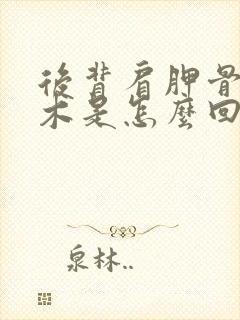 後背肩胛骨
木是怎麼回
泉林..